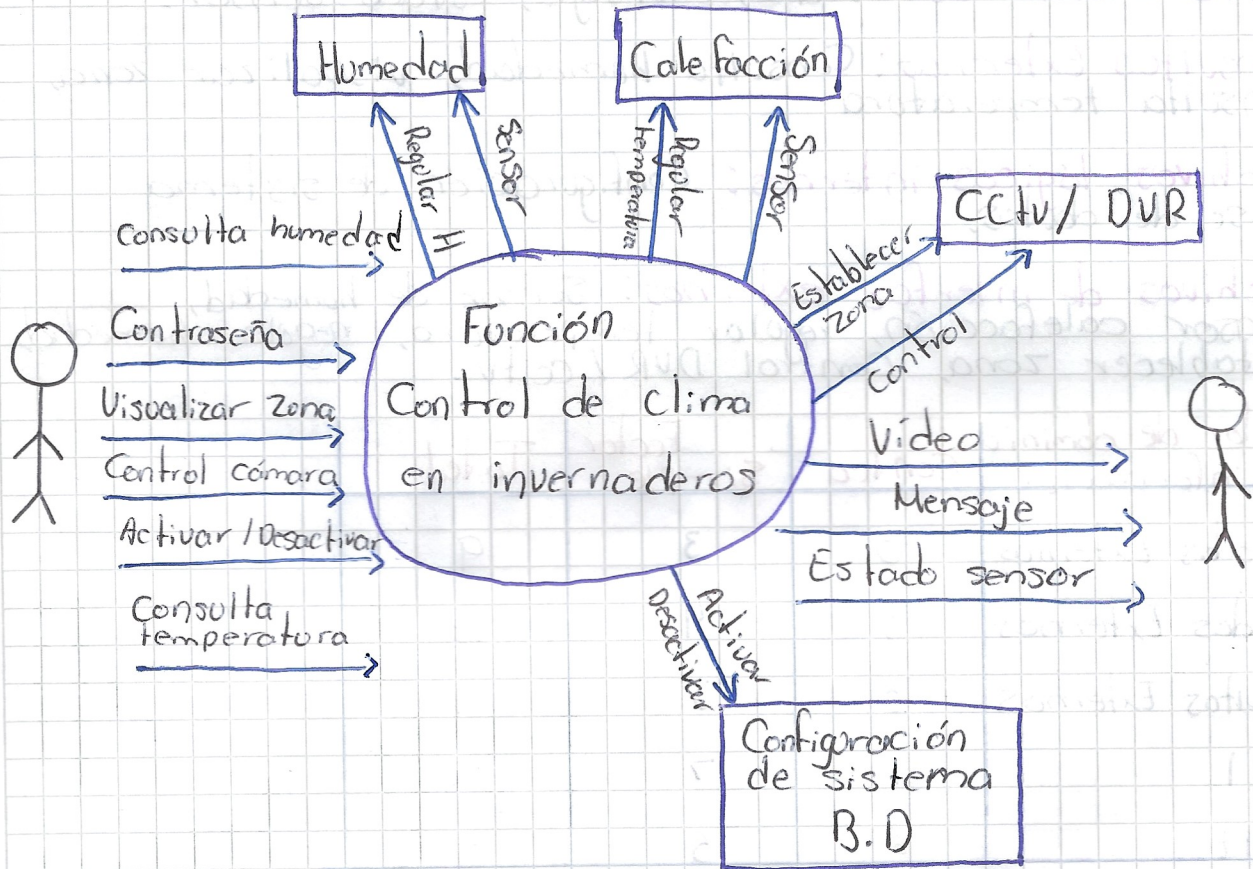 Humedad
Calefacción
Regular H
Sensor
Regular
temperatura
Sensor
CCtv / DVR
Establecer
zona
Control
Consulta humedad
Contraseña
Visualizar zona
Control cámara
Activar / Desactivar
Consulta
temperatura
Función
Control de clima
en invernaderos
Vídeo
Mensaje
Estado sensor
Activar
Desactivar
Configuración
de sistema
B.D